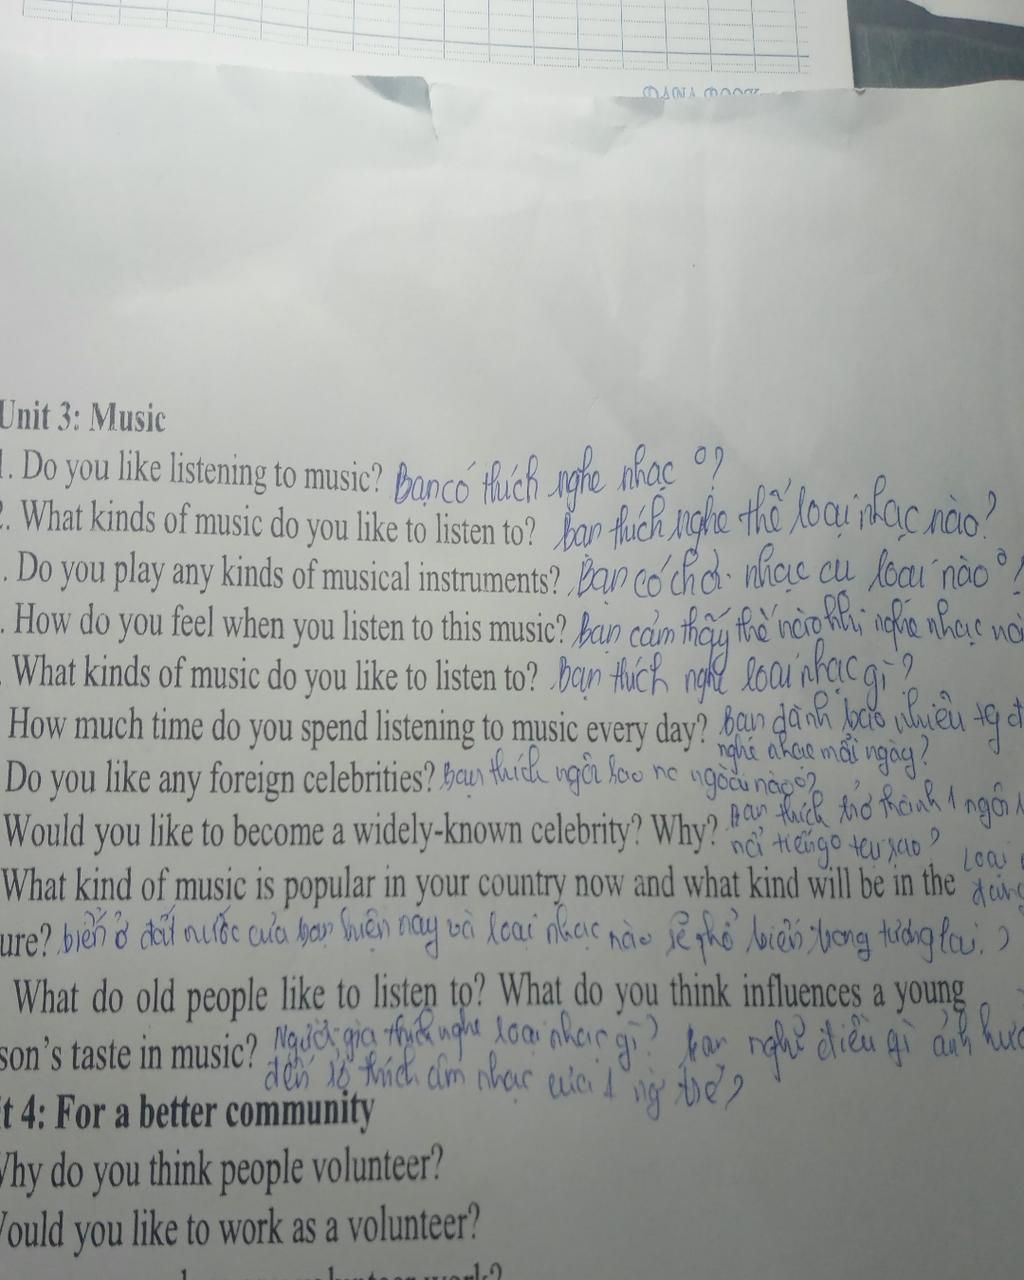 Unit 3: Music
. Do you like listening to music? Bạn có thích nghe nhạc 0?
. What kinds of music do you like to listen to? bạn thích nghe thể loại nhạc nào?
. Do you play any kinds of musical instruments? Bạn có chơi nhạc cụ loại nào 0?
. How do you feel when you listen to this music? bạn cảm thấy thế nào khi nghe nhạc
What kinds of music do you like to listen to? bạn thích nghe loại nhạc gì?
How much time do you spend listening to music every day? Bạn dành bao nhiêu tg
nghe nhạc mỗi ngày?
Do you like any foreign celebrities? Bạn thích ngôi sao nc ngoài nào 0?
Would you like to become a widely-known celebrity? Why? Bạn thích trở thành 1 ngôi
nổi tiếng 0 tại sao?
What kind of music is popular in your country now and what kind will be in the loại
đang
ure? biến ở đất nước của bạn hiện nay và loại nhạc nào sẽ phổ biến trong tương lai?
What do old people like to listen to? What do you think influences a young
son's taste in music? Người già thích nghe loại nhạc gì? bạn nghĩ điều gì ảnh
đến sở thích âm nhạc của 1 ng trẻ?
t 4: For a better community
Why do you think people volunteer?
ould you like to work as a volunteer?